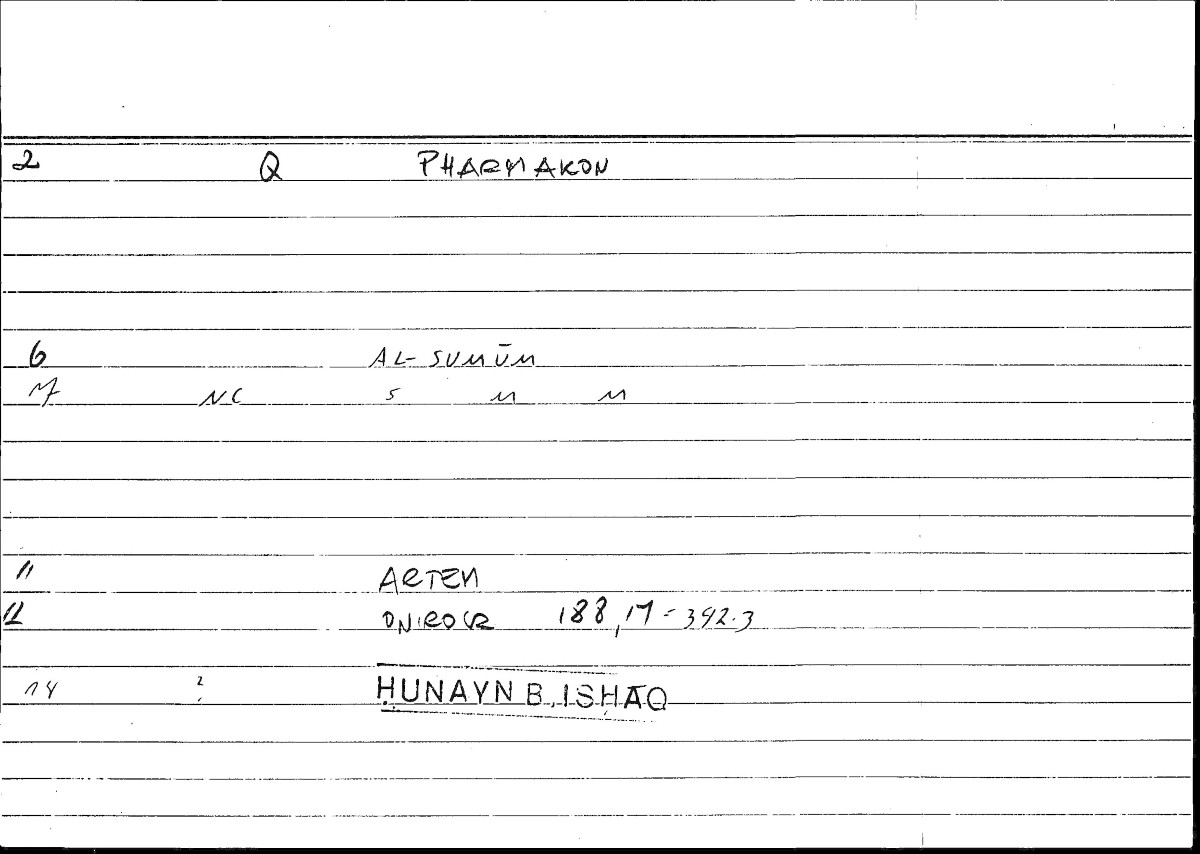 2 Q PHARMAKON
6 AL-SUMŪM
7 NC s m m
11 ARTEM
12 ONIROCR 188,17 = 392.3
14 2 ḤUNAYN B. ISḤĀQ